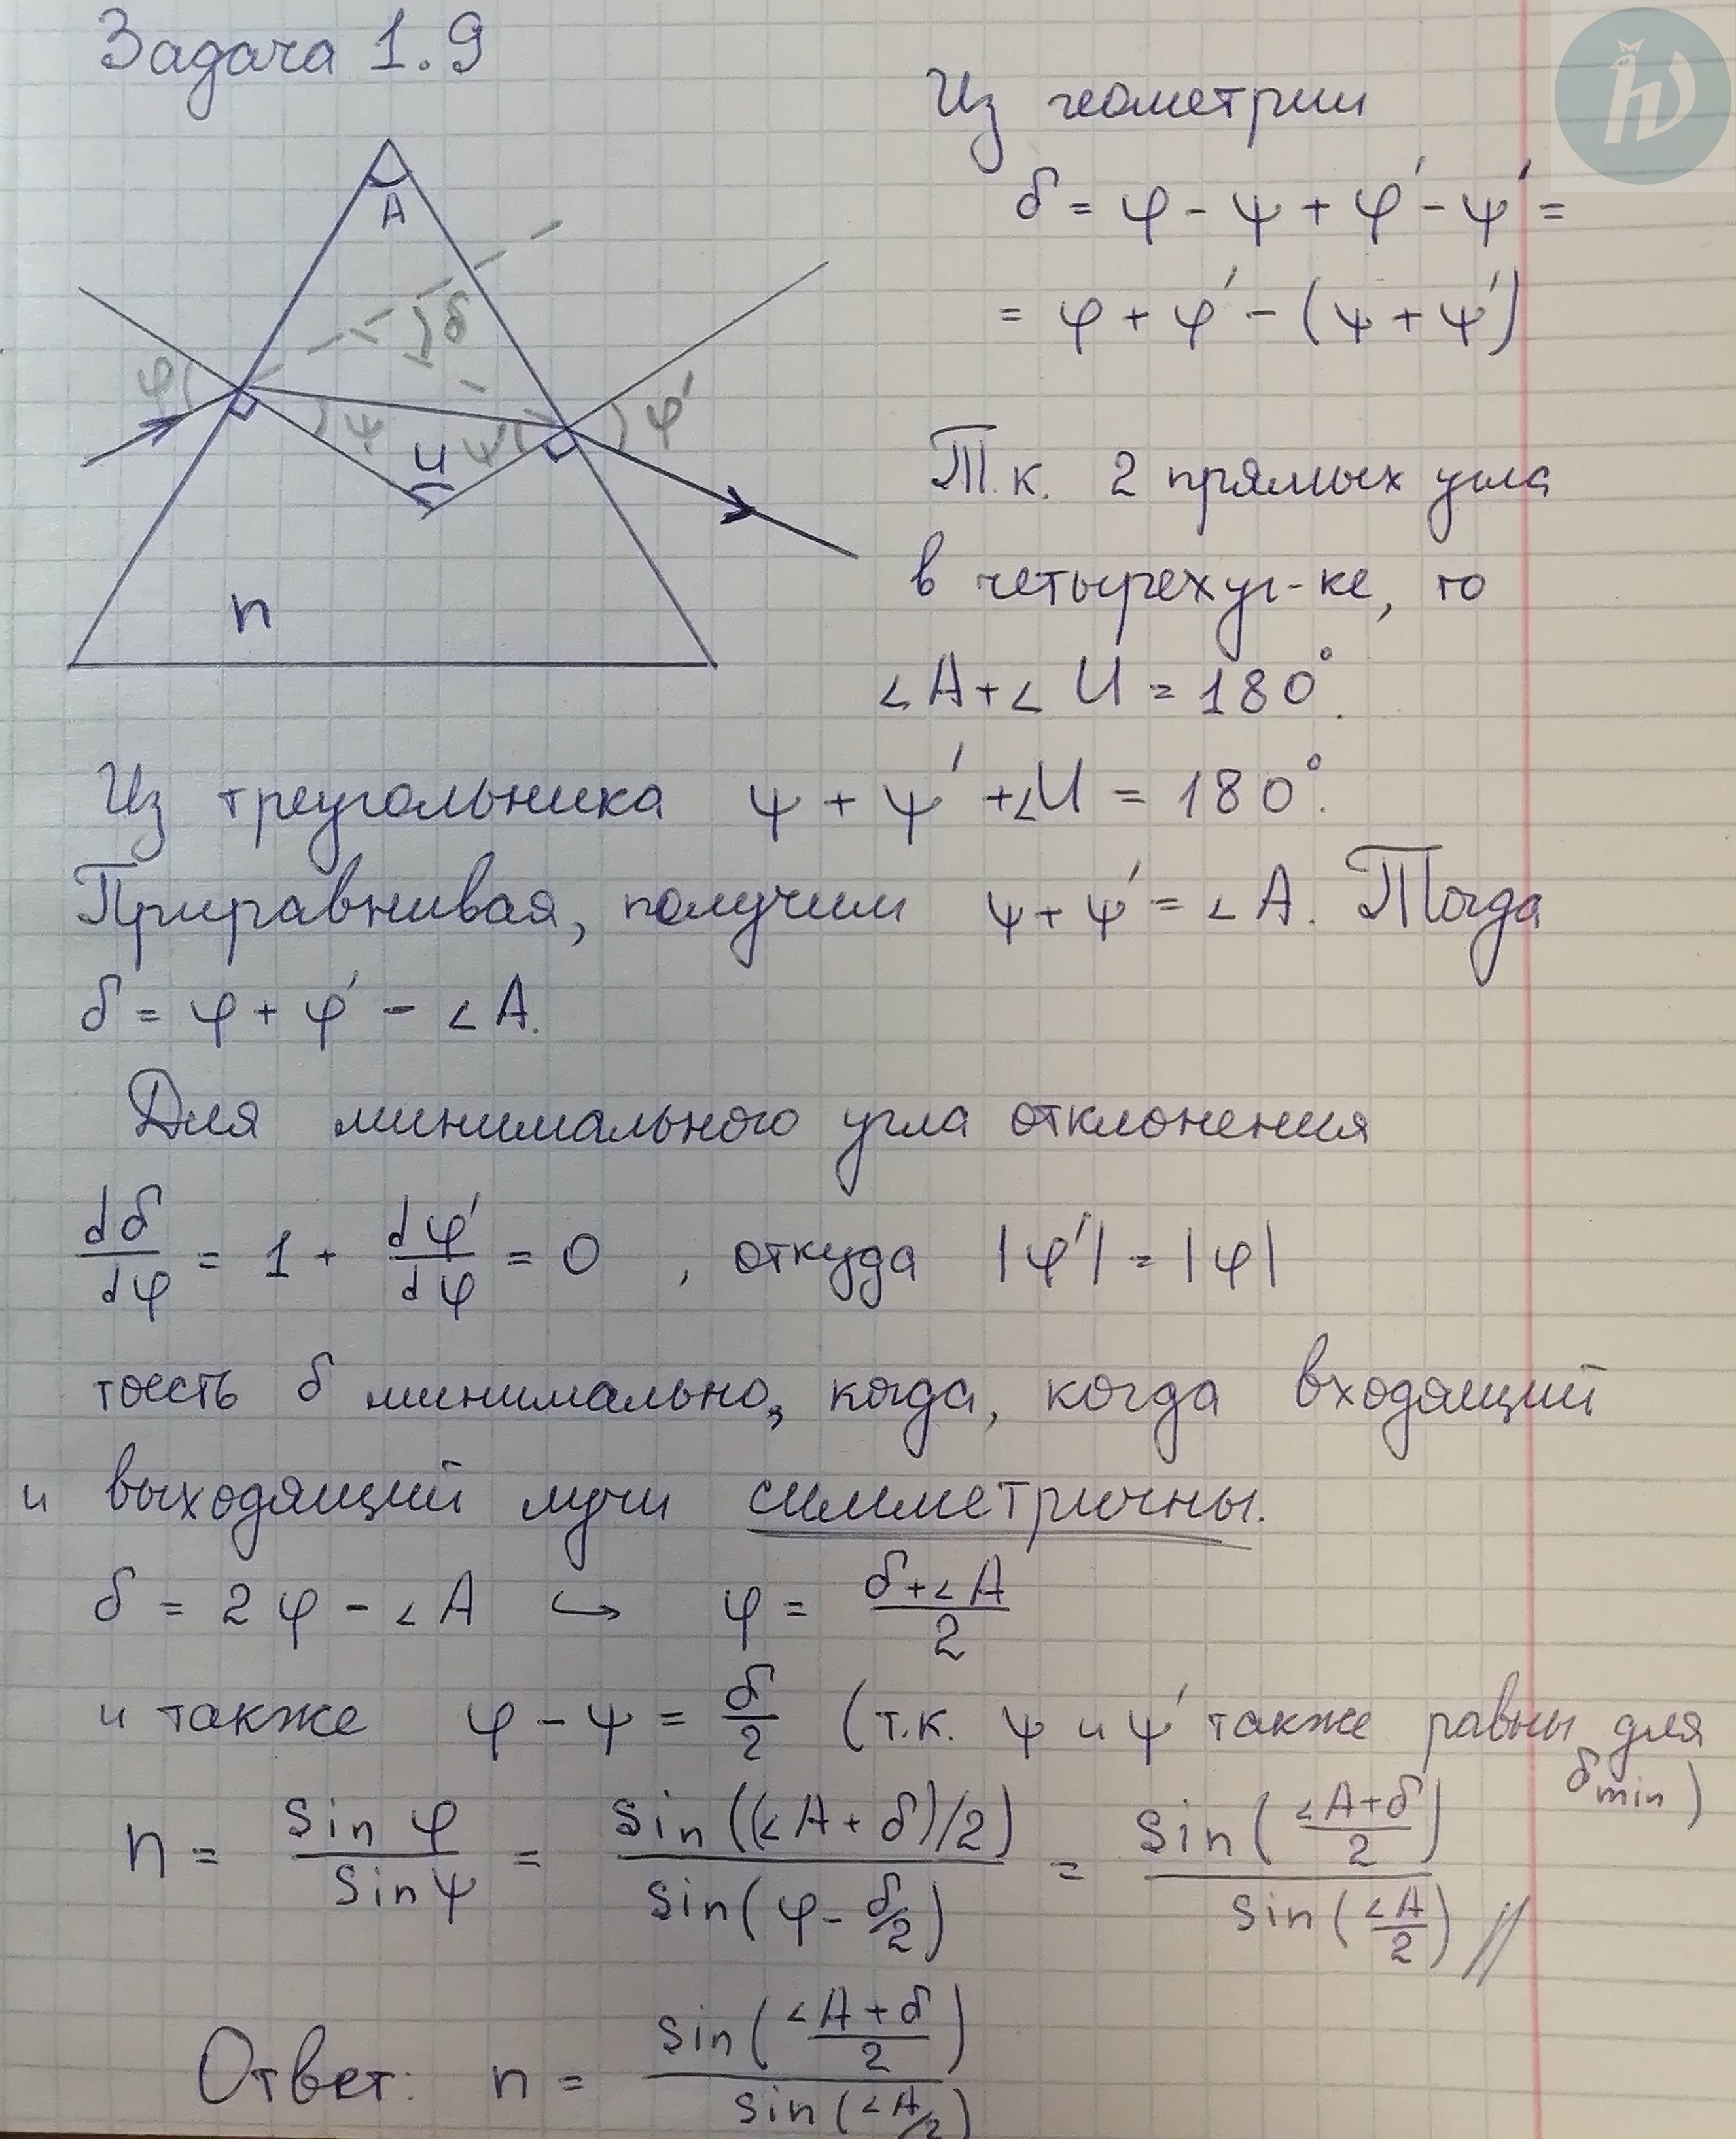 Задача 1.9
A
δ
φ
ψ
И
ψ'
φ'
n
Из геометрии
δ = φ - ψ + φ' - ψ' =
= φ + φ' - (ψ + ψ')
Т.к. 2 прямых угла
в четырехуг-ке, то
∠A + ∠И = 180°.
Из треугольника ψ + ψ' + ∠И = 180°.
Приравнивая, получим ψ + ψ' = ∠A. Тогда
δ = φ + φ' - ∠A.
Для минимального угла отклонения
dδ/dφ = 1 + dφ'/dφ = 0 , откуда |φ'| = |φ|
тоесть δ минимально, когда, когда входящий
и выходящий лучи симметричны.
δ = 2φ - ∠A ↪ φ = (δ+∠A)/2
и также φ - ψ = δ/2 (т.к. ψ и ψ' также равны для
δmin)
n = sin φ / sin ψ = sin((∠A + δ)/2) / sin(φ - δ/2) = sin((∠A+δ)/2) / sin(∠A/2) //
Ответ: n = sin((∠A+δ)/2) / sin(∠A/2)